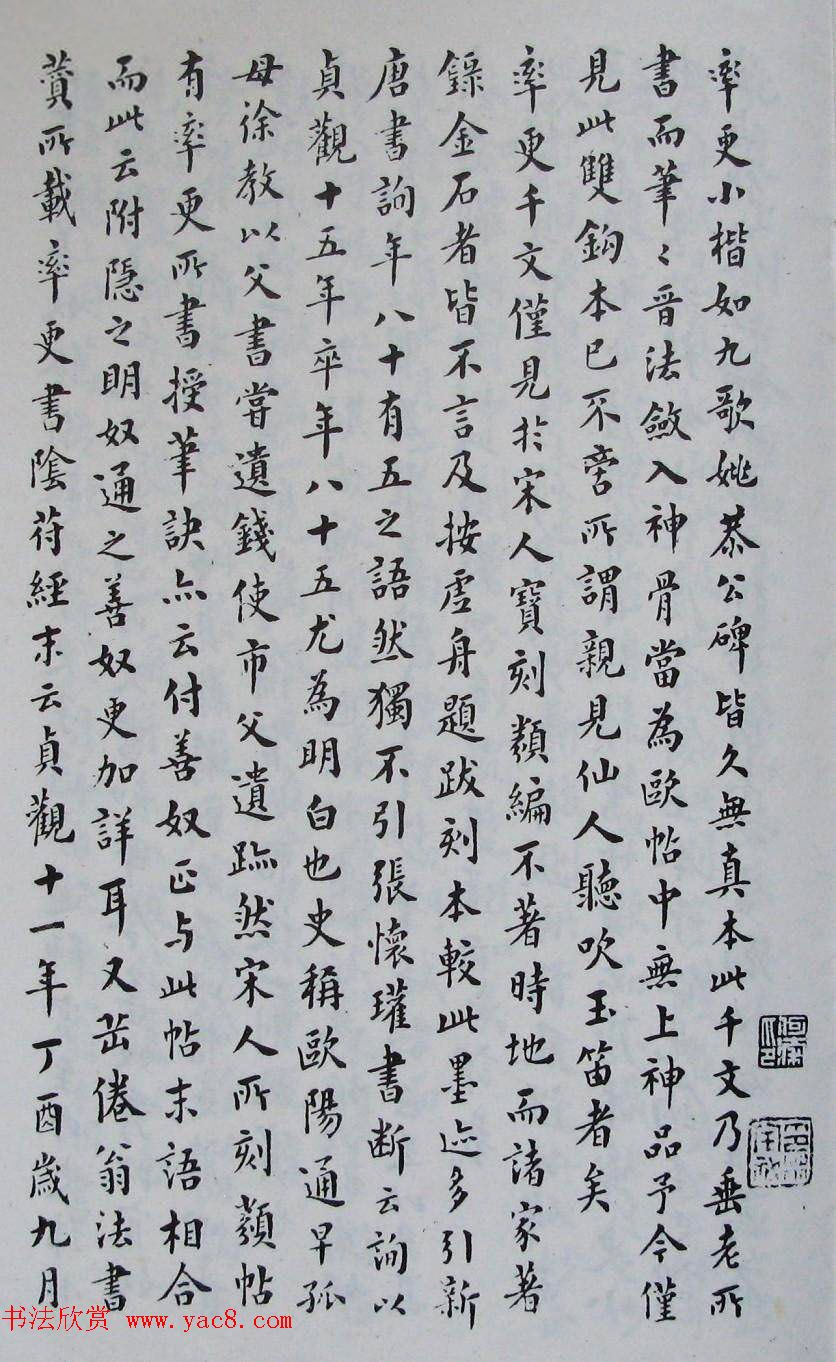 率更小楷如九歌姚恭公碑皆久無真本此千文乃垂老所
書而筆〻晋法斂入神骨當為歐帖中無上神品予今僅
見此雙鈎本已不啻所謂親見仙人聽吹玉笛者矣
率更千文僅見於宋人寶刻類編不著時地而諸家著
錄金石者皆不言及按虛舟題跋刻本較此墨迹多引新
唐書詢年八十有五之語然獨不引張懷瓘書斷云詢以
貞觀十五年卒年八十五尤為明白也史稱歐陽通早孤
母徐教以父書嘗遺錢使市父遺跡然宋人所刻類帖
有率更所書授筆訣亦云付善奴正与此帖末語相合
而此云附隱之明奴通之善奴更加詳耳又岳倦翁法書
贊所載率更書陰符經末云貞觀十一年丁酉歲九月
书法欣赏 www.yac8.com